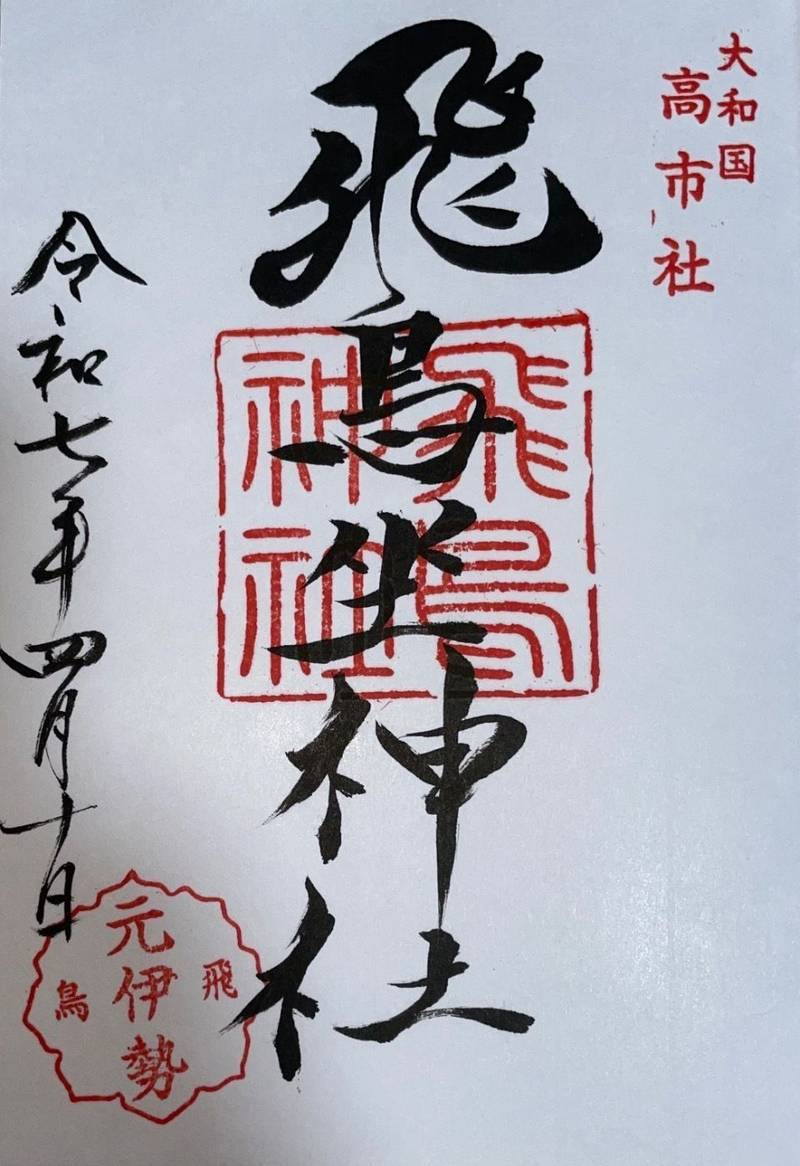 大和国
高市社
飛鳥坐神社
飛鳥
神社
令和七年四月十日
飛鳥
元伊勢